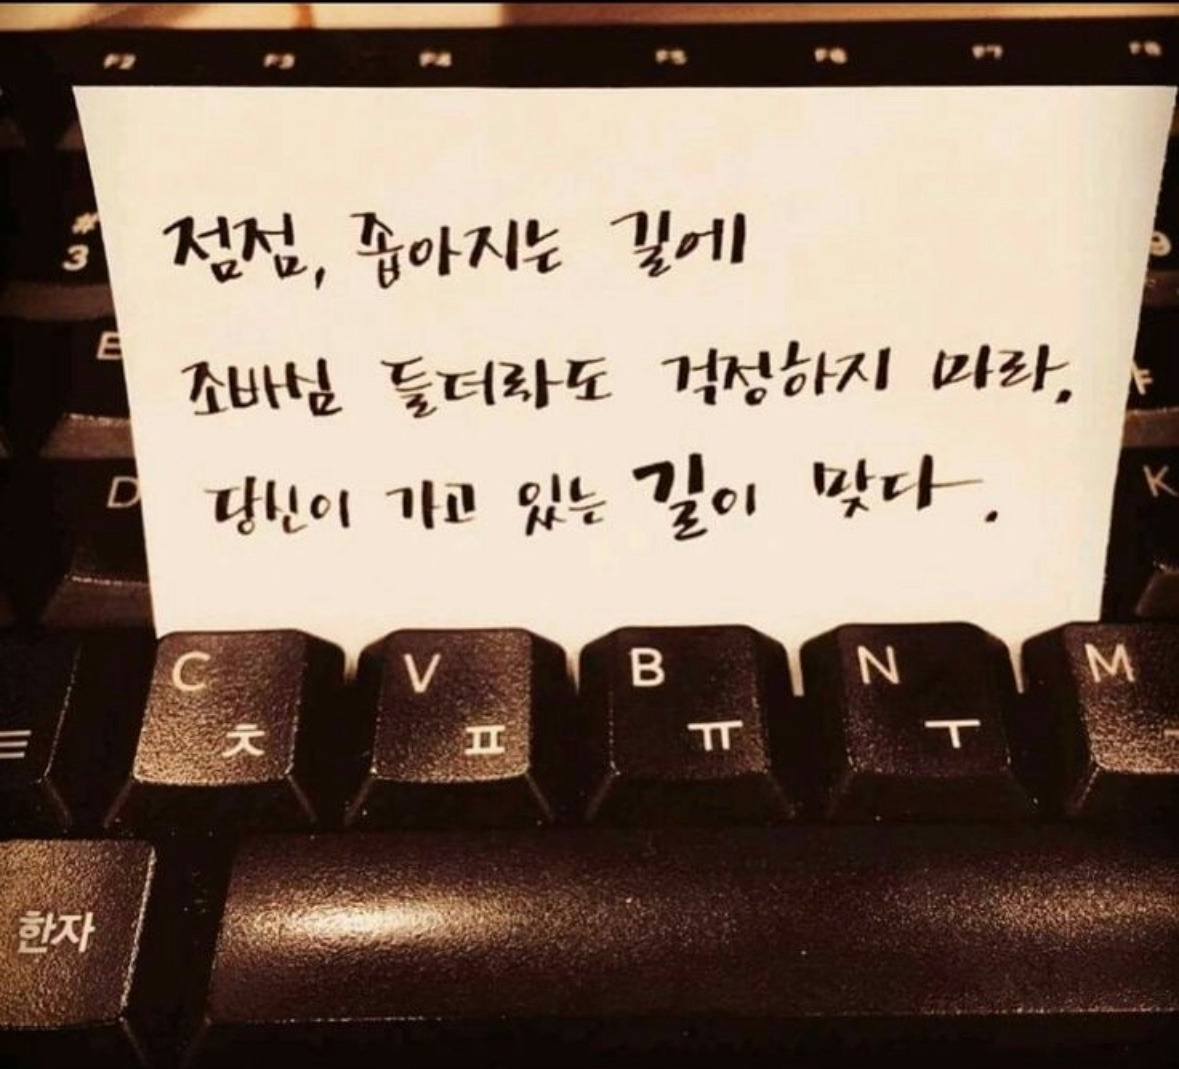 F2 F3 F4 F5 F6 F7 F8
점점, 좁아지는 길에
# 3 9
조바심 들더라도 걱정하지 마라.
E ㅑ
당신이 가고 있는 길이 맞다.
D K
C V B N M
ㅊ ㅍ ㅠ ㅜ ㅡ
한자